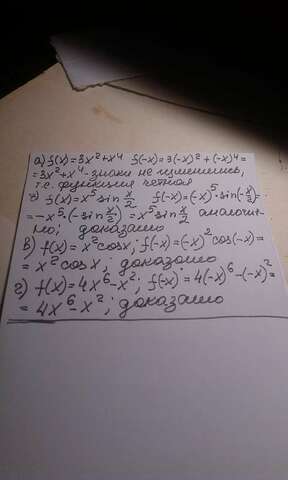 а) f(x)=3x²+x⁴ f(-x)=3(-x)²+(-x)⁴=
=3x²+x⁴-знаки не изменились,
т.е. функция чётная
б) f(x)=x⁵sin x/2 f(-x)=(-x)⁵·sin(-x/2)=
=-x⁵·(-sin x/2)=x⁵sin x/2 аналогич-
но; доказано
в) f(x)=x²cosx; f(-x)=(-x)²cos(-x)=
=x²cosx; доказано
г) f(x)=4x⁶-x²; f(-x)=4(-x)⁶-(-x)²=
=4x⁶-x²; доказано